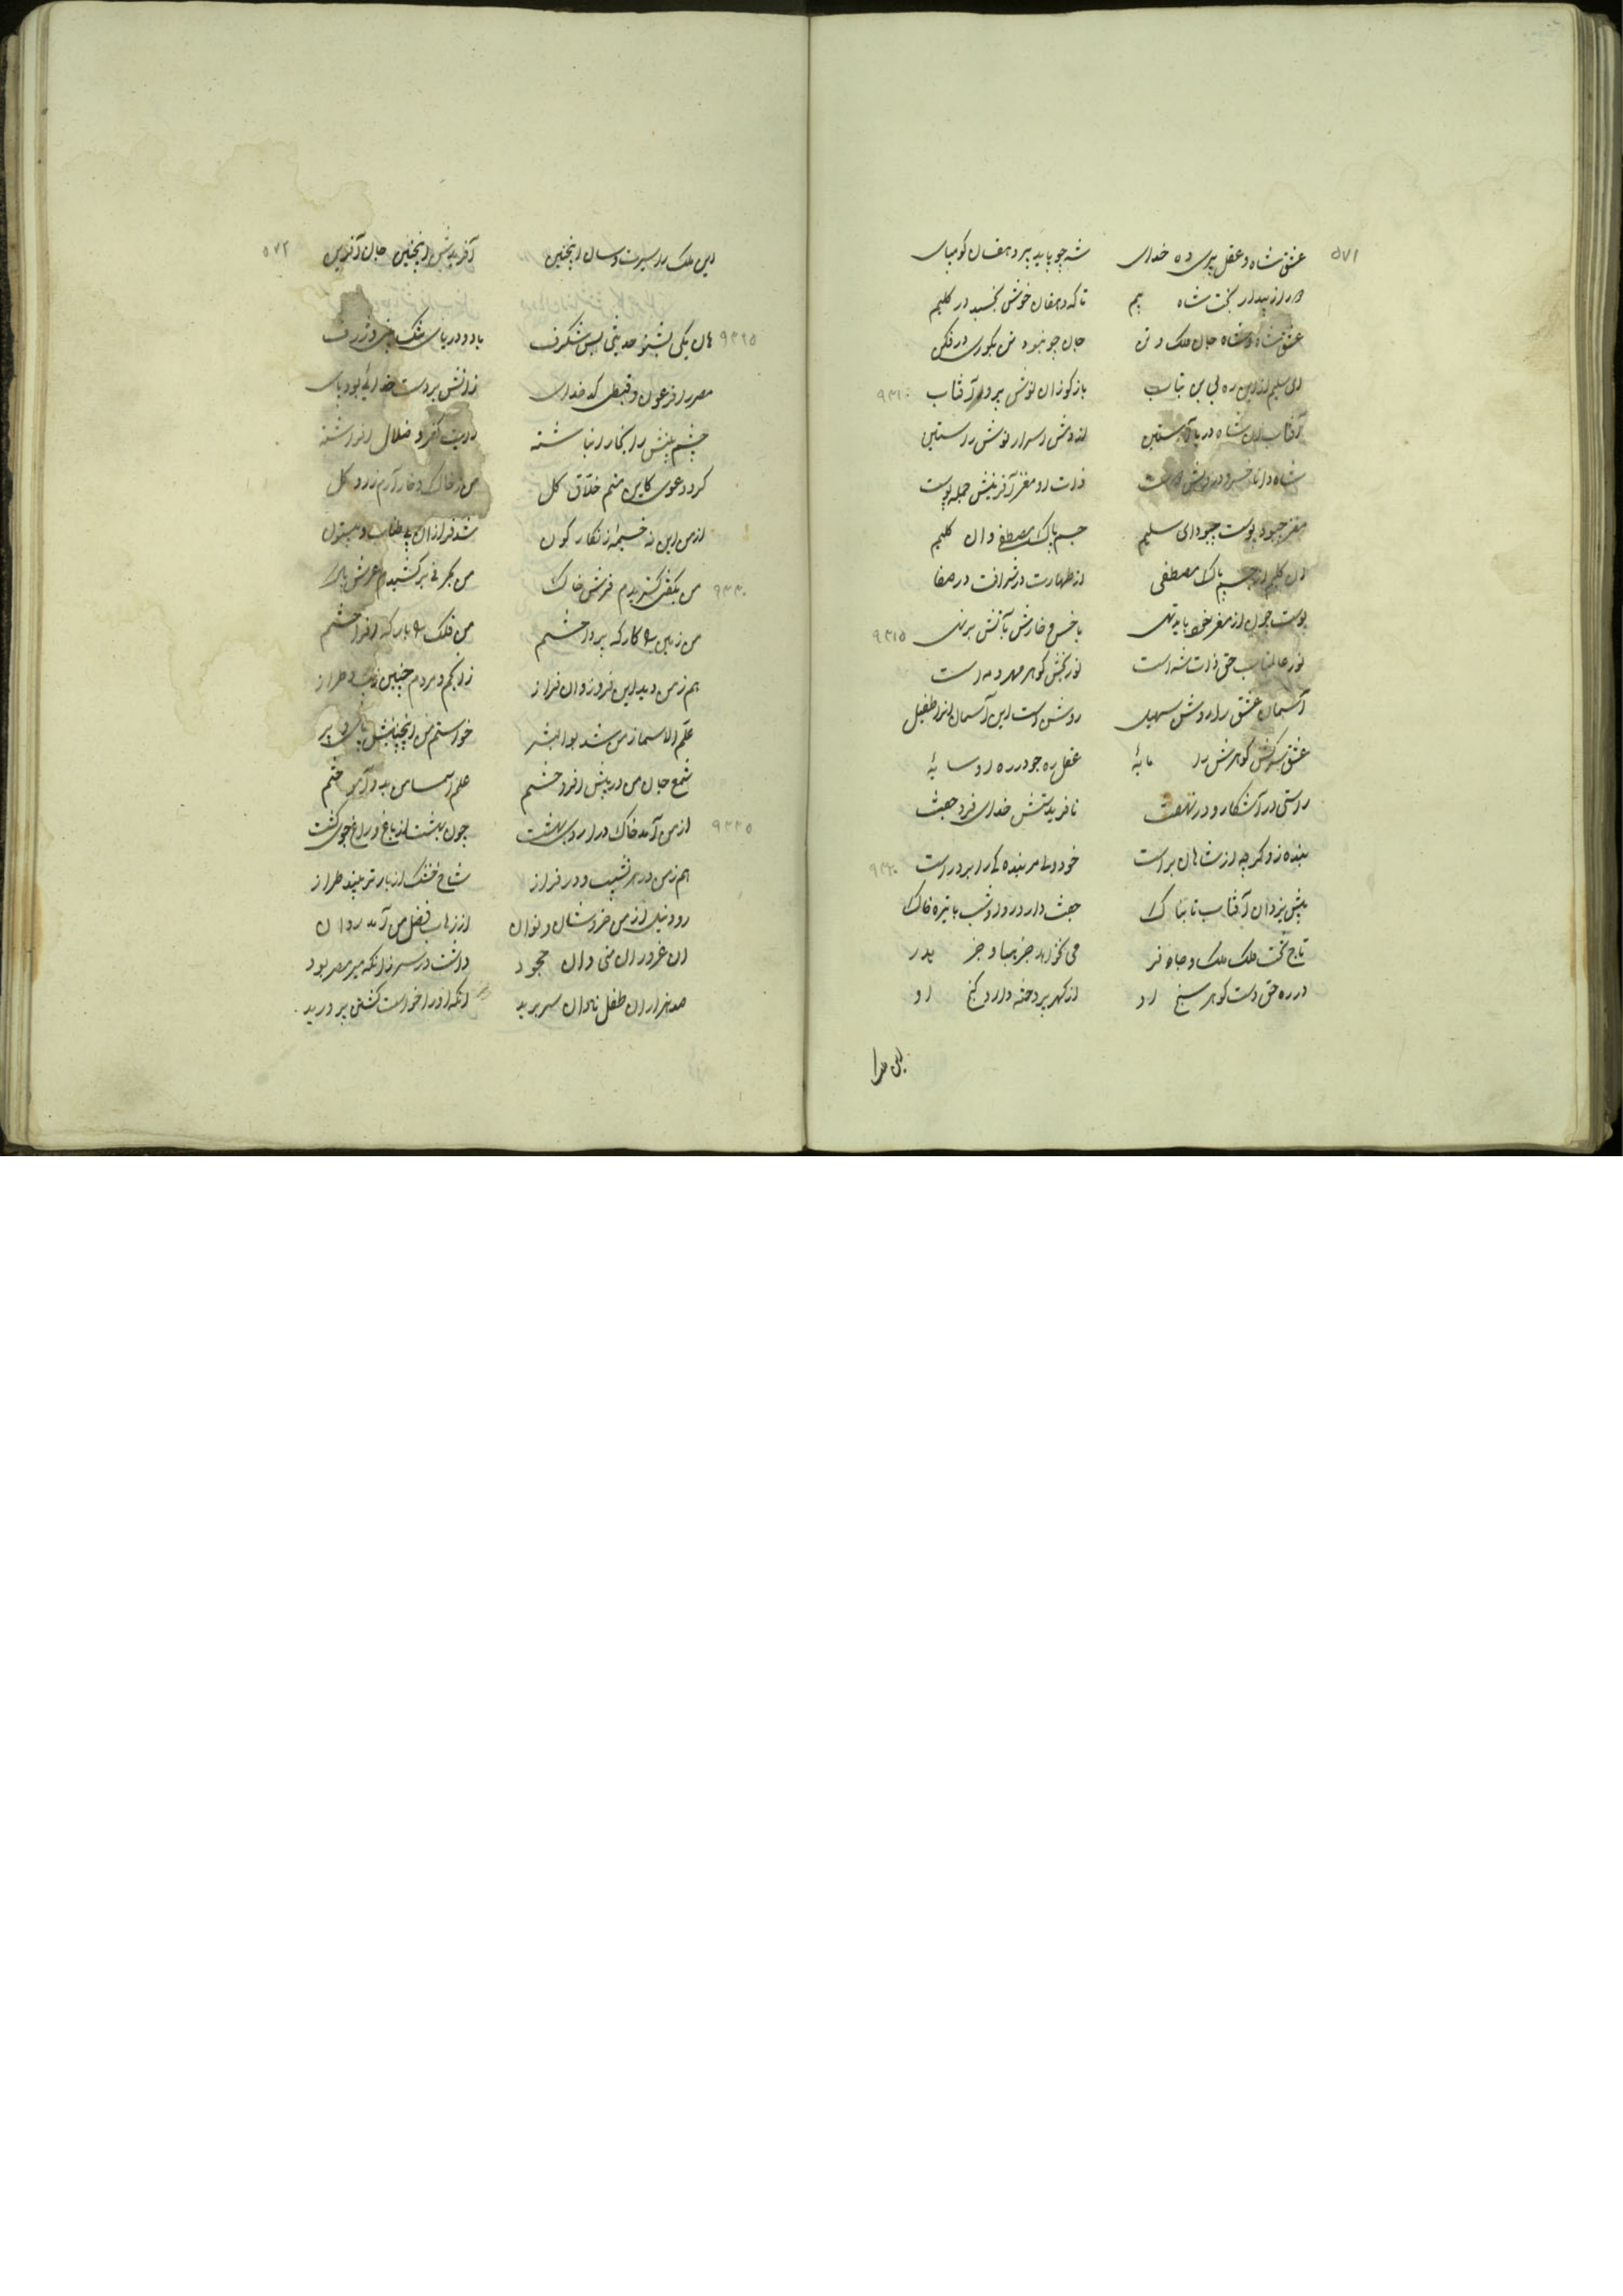 ۵۷۱
عشق شاه و عقل پیری ده خدای شه چو باید پیر دهقان گو مپای
از بیدار بخت شاه بیم تا که دهقان خوش بخسبد در گلیم
عشق شاه و شاه جان ملک و تن جان چو نبود تن بگوری در فکن
ای سلیم از این ره بی بن متاب بازگو زان نوش پرور آفتاب ۹۳۱۰
آفتاب این شاه دریا آستین از دمش اسرار نوش راستین
شاه دانا خسرو درویش ذات رو مغز آفرینش جمله پوست
مغز چبود پوست چبود ای سلیم جسم پاک مصطفی و ان کلیم
ان کلیم از جسم پاک مصطفی از طهارت در شرافت در صفا
پوست چون از مغز خود باید تهی با خس و خارش بآتش برنهی ۹۳۱۵
نور عالمتاب حق ذات شه است نور بخش گوهر مهر و مه است
آسمان عشق را روش سهیل روشن است این آسمان او را طفیل
عشق گوهرش را مایهٔ عقل ره جو در ره او سایهٔ
راستی در آشکار و در نهفت نافریدستش خدای فرد جفت
بنده زو گرچه از شاهان براست خود ولی مر بنده را برادر است ۹۳۲۰
پیش یزدان آفتاب تابناک جفت دارد روز و شب با تیره خاک
تاج تخت ملک ملک و جاه و فر می نخواهد جز بها و جز پدر
در ره حق دست گوهر سنج او از گهر پردخته دارد گنج او
این ملک را
۵۷۲
این ملک را سیرت و سان اینچنین آفریدش اینچنین جان آفرین
۹۳۲۵ هان یکی بشنو حدیثی بس شگرف یاد و دریای خشک و ژرف
مصر را فرعون و قبطی کدخدای زانش بر دست خدائی بود پای
چشم بینش را بخار انباشته رایت کفر و ضلال افراشته
کرد دعوی کاین منم خلاق کل من ز خاک و خار آرم زرد و گل
از من این نه خیمهٔ زنگارگون شد فراز ان بی طناب و بیستون
۹۳۳۰ من بکفی گستریدم فرش خاک من بحرفی برکشیدم عرش پاک
من زمین را کارگه پرداختم من فلک را بارگه افراختم
هم ز من دید این فروز و ان فراز ز انجم و مردم چنین زیب و طراز
علم الاسما ز من شد بوالبشر خواستم من اینچنینش
شمع جان من در پیش افروختم علم اسما من بدو آموختم
۹۳۳۵ از من آمد خاک در اردی بهشت چون بهشت از باغ و راغ و جوی کشت
هم ز من در هر نشیب و در فراز شاخ خشک از بار تر بیند طراز
رود نیل از من خروشان و نوان از زهاب فضل من آمد روان
ان غرور ان منی و ان جحود داشت در سر زانکه میر مصر بود
صد هزاران طفل نادان سر برید انکه او را خواست کشتن پرورید